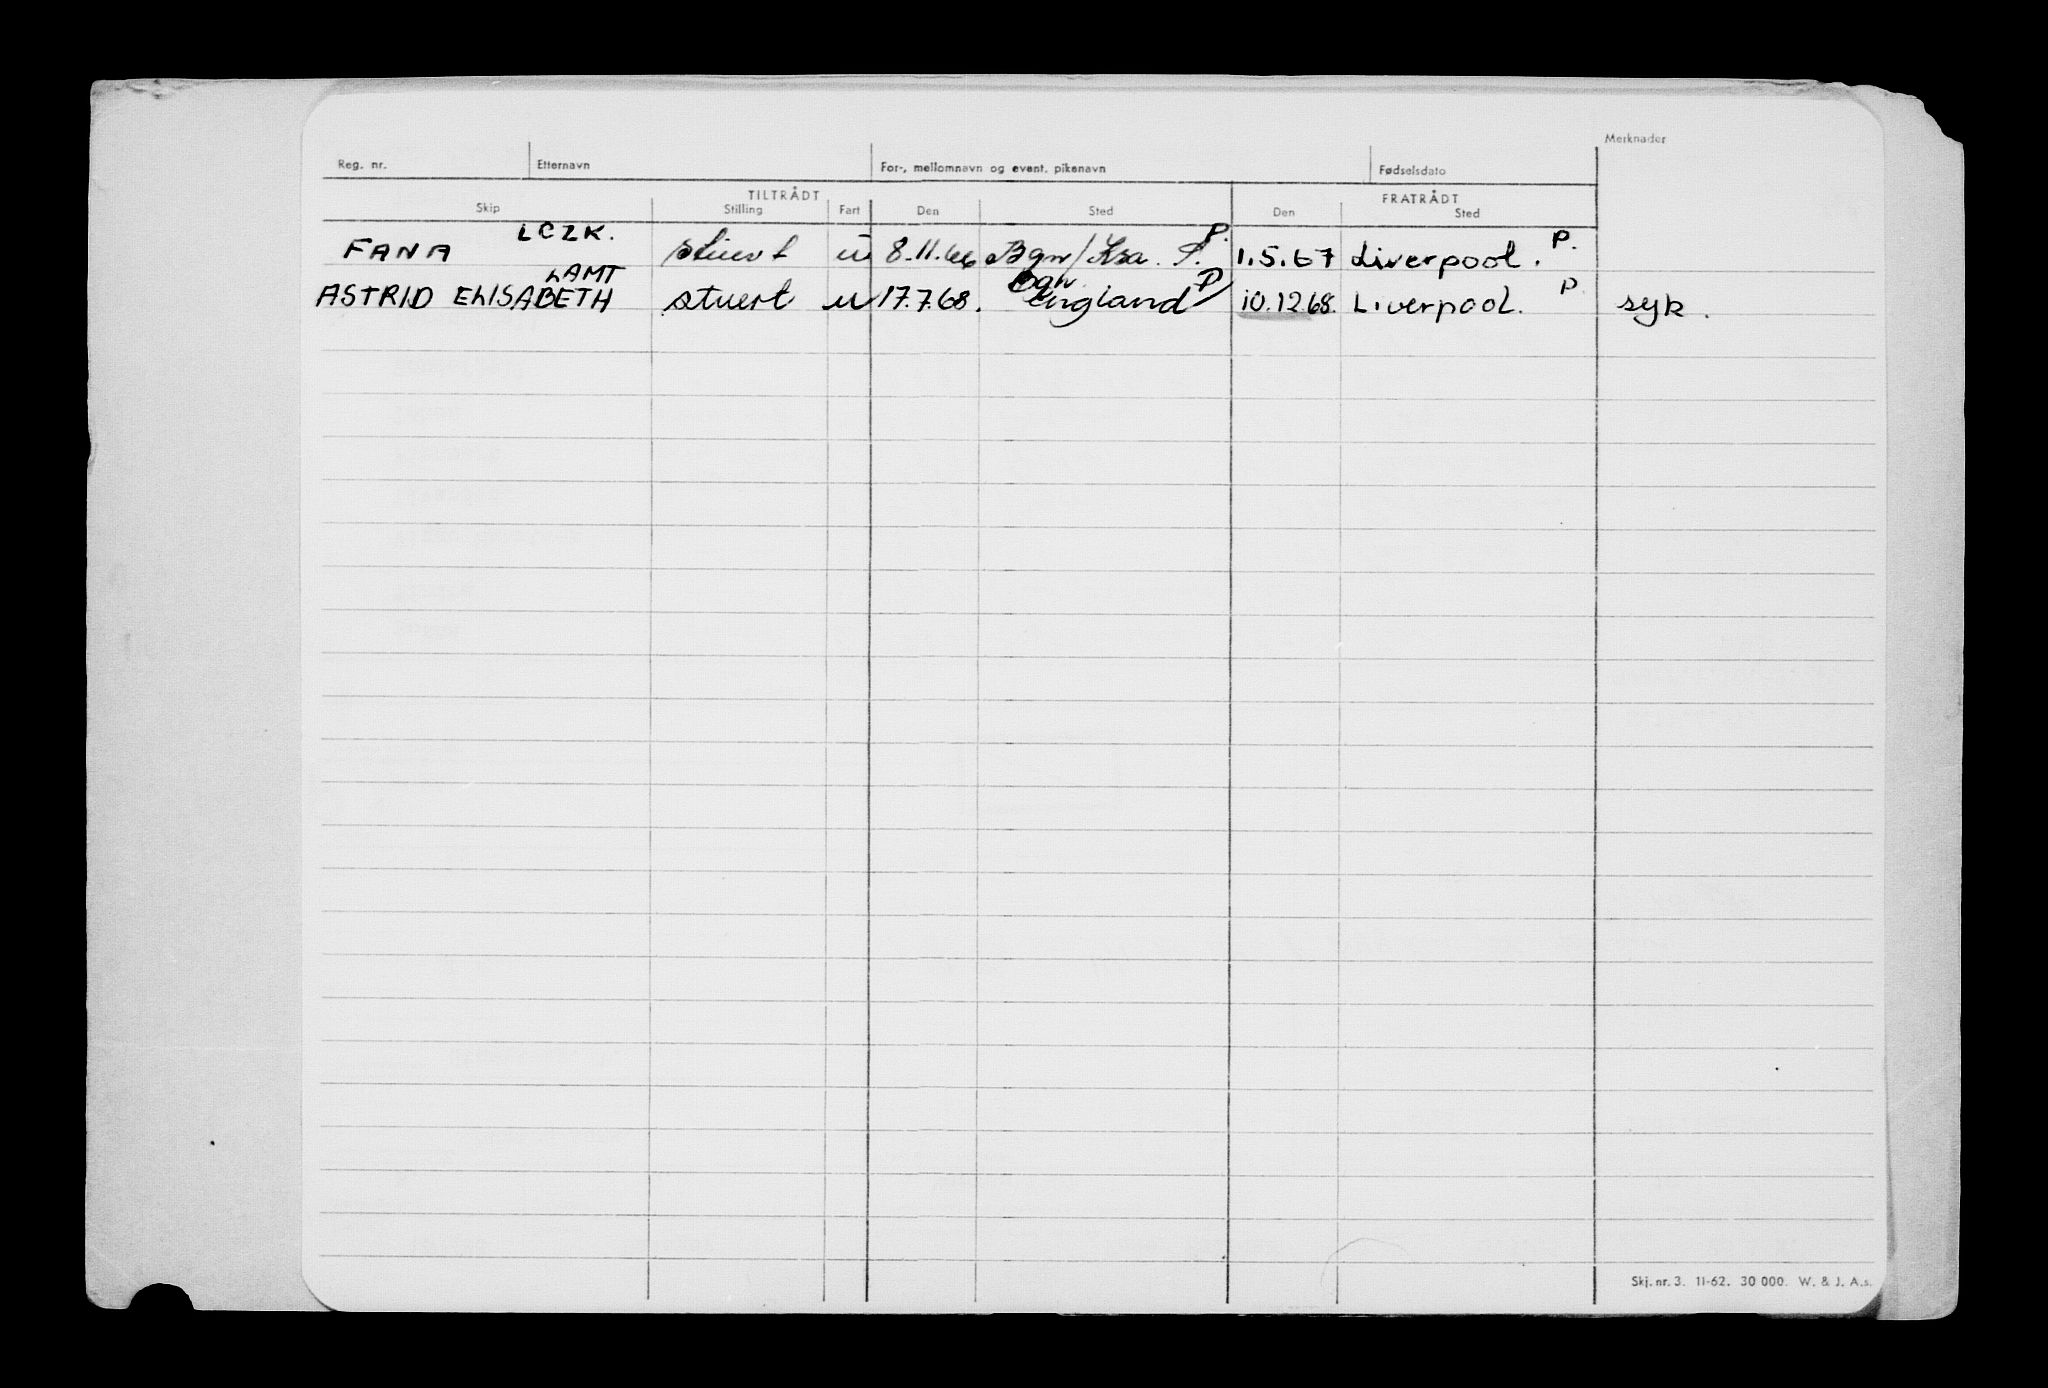 Merknader
Reg. nr. Etternavn For-, mellomnavn og event. pikenavn Fødselsdato
TILTRÅDT FRATRÅDT
Skip Stilling Fart Den Sted Den Sted
LCZK.
FANA stuert u 8.11.66 Bgn/Ksa. P. 1.5.67 Liverpool. P.
LAMT
ASTRID ELISABETH stuert u 17.7.68. Bgn England P 10.12.68. Liverpool. P syk.
Skj. nr. 3. 11-62. 30 000. W. & J. A.s.